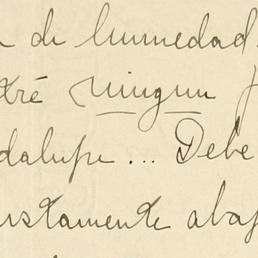 de humedad.
tré ningun
dalupe... Debe
ustamente abaj